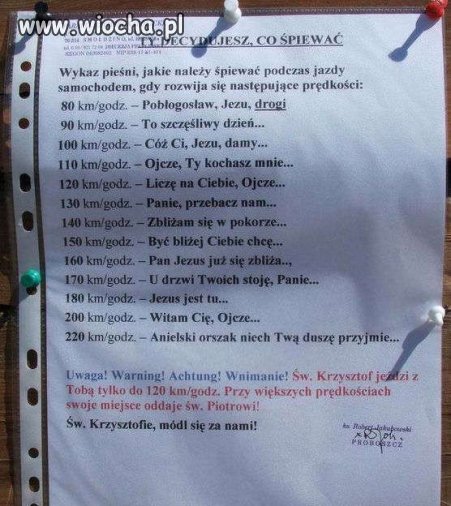 www.wiocha.pl
TY DECYDUJESZ, CO ŚPIEWAĆ
Wykaz pieśni, jakie należy śpiewać podczas jazdy
samochodem, gdy rozwija się następujące prędkości:
80 km/godz. – Pobłogosław, Jezu, drogi
90 km/godz. – To szczęśliwy dzień...
100 km/godz. – Cóż Ci, Jezu, damy...
110 km/godz. – Ojcze, Ty kochasz mnie...
120 km/godz. – Liczę na Ciebie, Ojcze...
130 km/godz. – Panie, przebacz nam...
140 km/godz. – Zbliżam się w pokorze...
150 km/godz. – Być bliżej Ciebie chcę...
160 km/godz. – Pan Jezus już się zbliża..,
170 km/godz. – U drzwi Twoich stoję, Panie...
180 km/godz. – Jezus jest tu...
200 km/godz. – Witam Cię, Ojcze...
220 km/godz. – Anielski orszak niech Twą duszę przyjmie...
Uwaga! Warning! Achtung! Wnimanie! Św. Krzysztof jeździ z
Tobą tylko do 120 km/godz. Przy większych prędkościach
swoje miejsce oddaje św. Piotrowi!
Św. Krzysztofie, módl się za nami!
ks. Robert Jakubowski
PROBOSZCZ